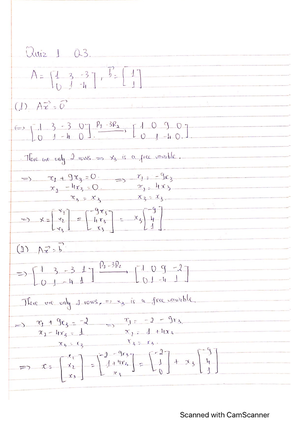 Quiz 1 Q3.
A = [1 3 -3; 0 1 -4], b⃗ = [1; 1]
(1) Ax⃗ = 0⃗
⇔ [1 3 -3 0; 0 1 -4 0] P1 - 3P2 → [1 0 9 0; 0 1 -4 0]
There are only 2 rows ⇒ x3 is a free variable.
⇒ x1 + 9x3 = 0 ⇒ x1 = -9x3
x2 - 4x3 = 0 x2 = 4x3
x3 = x3 x3 = x3
⇒ x = [x1; x2; x3] = [-9x3; 4x3; x3] = x3 [-9; 4; 1]
(2) Ax⃗ = b⃗
⇒ [1 3 -3 1; 0 1 -4 1] P1 - 3P2 → [1 0 9 -2; 0 1 -4 1]
There are only 2 rows, ⇒ x3 is a free variable.
⇒ x1 + 9x3 = -2 ⇒ x1 = -2 - 9x3
x2 - 4x3 = 1 x2 = 1 + 4x3
x3 = x3 x3 = x3
⇒ x = [x1; x2; x3] = [-2 - 9x3; 1 + 4x3; x3] = [-2; 1; 0] + x3 [-9; 4; 1]
Scanned with CamScanner